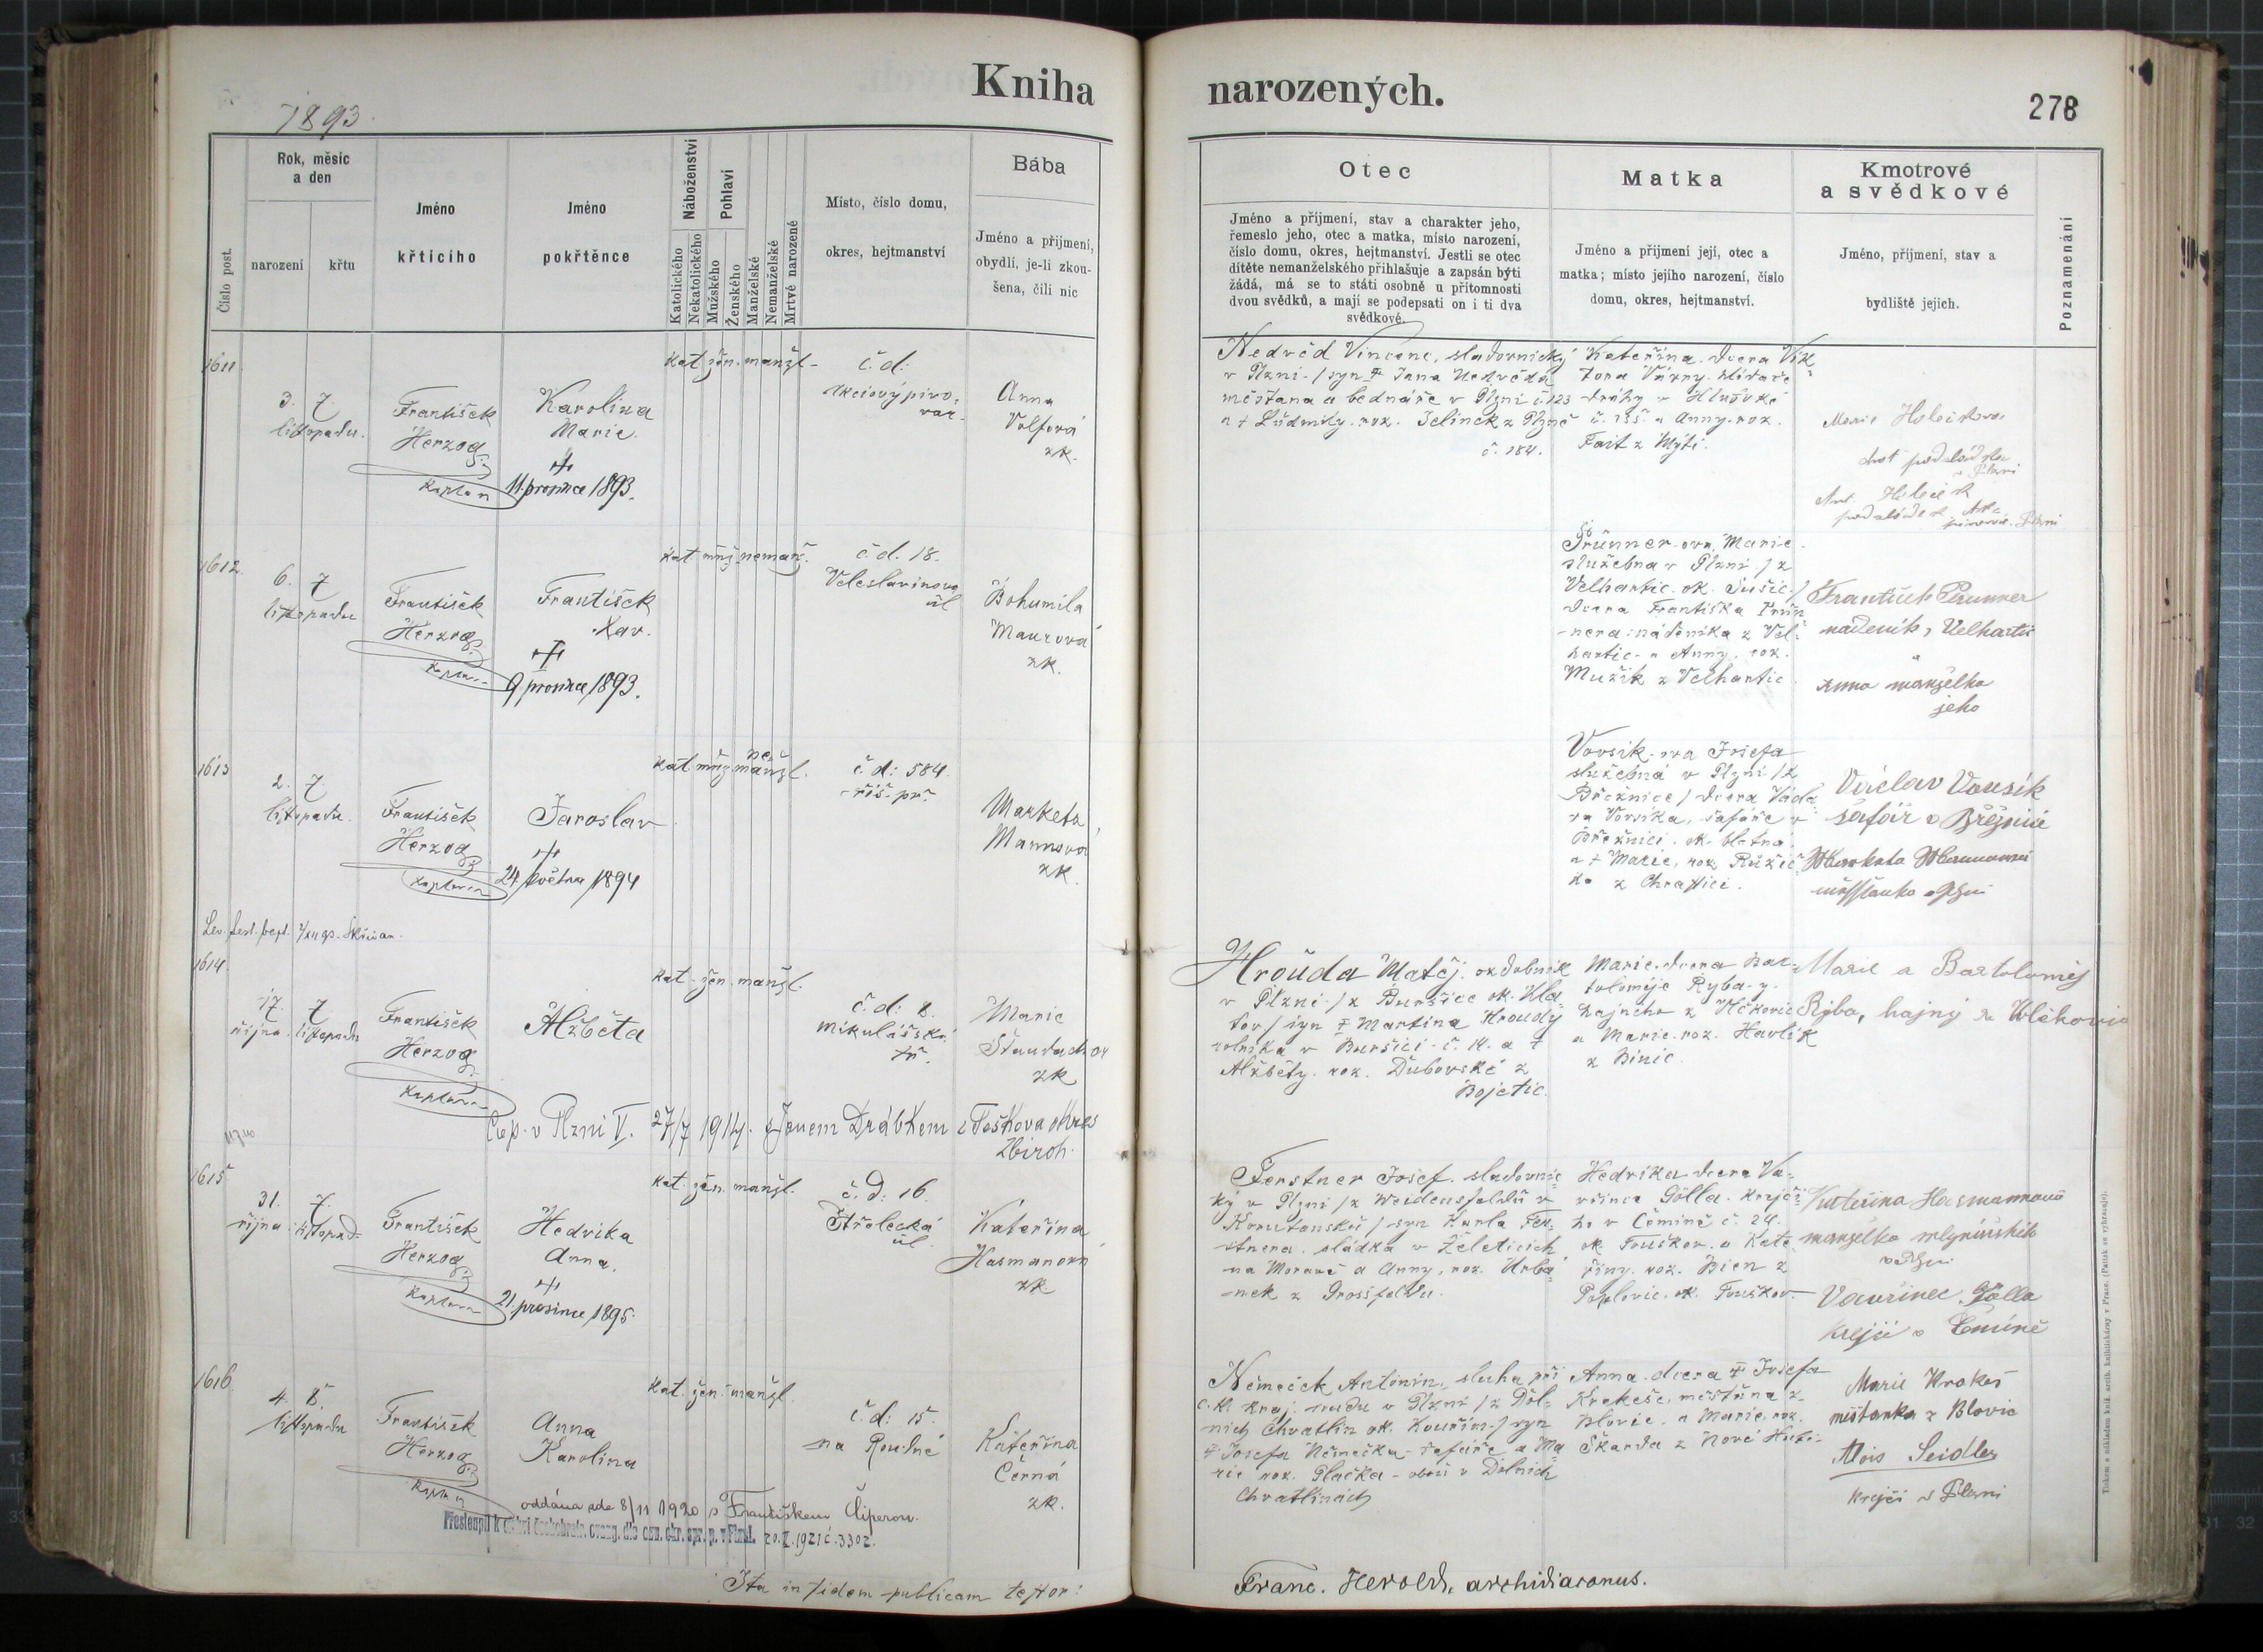 Kniha narozených.
1893.
278
Číslo post.
Rok, měsíc
a den
narození
křtu
Jméno
křtícího
Jméno
pokřtěnce
Náboženství
Katolického
Nekatolického
Pohlaví
Mužského
Ženského
Manželské
Nemanželské
Mrtvé narozené
Místo, číslo domu,
okres, hejtmanství
Bába
Jméno a přijmení,
obydlí, je-li zkou-
šena, čili nic
Otec
Jméno a příjmení, stav a charakter jeho,
řemeslo jeho, otec a matka, místo narození,
číslo domu, okres, hejtmanství. Jestli se otec
dítěte nemanželského přihlašuje a zapsán býti
žádá, má se to státi osobně u přítomnosti
dvou svědků, a mají se podepsati on i ti dva
svědkové.
Matka
Jméno a přijmení její, otec a
matka; místo jejího narození, číslo
domu, okres, hejtmanství.
Kmotrové
a svědkové
Jméno, příjmení, stav a
bydliště jejich.
Poznamenání
1611
3. 7.
listopadu.
František
Herzog
kaplan
Karolina
Marie.
11. prosince 1893.
kat. žen. manžl.
č. d.
Akciový pivo-
var.
Anna
Volfová
zk.
Nedvěd Vincenc, sladovnický
v Plzni / syn † Jana Nedvěda
měšťana a bednáře v Plzni č. 123
a † Ludmily, roz. Jelínek z Plzně
č. 184.
Kateřina, dcera Vik-
tora
dráhy v
a Anny, roz.
Fait z Mýti.
Marie
1612.
6. 7
listopadu
František
Herzog
kaplan
František
Xav.
9. prosince 1893.
kat. muž. nemanž.
č. d. 18.
Veleslavínova
ul.
Bohumila
Maurová
zk.
Marie
služebna v Plzni / z
Velhartic ok. Sušic /
dcera Františka Prün-
nera nádeníka z Vel-
hartic a Anny, roz.
Mužik z Velhartic
František Prunner
nádeník, Velhartic
a
Anna manželka
jeho
1613
2. 7
listopadu.
František
Herzog
kaplan
Jaroslav
24. května 1894
kat. muž. nemanžl.
č. d: 584.
říš. př.
Marketa
Mannová
zk.
Vovsik-ova Josefa
služebná v Plzni / z
Březnice / dcera Václa-
va Vovsíka, šafáře v
Březnici ok. Blatná
a † Marie, roz. Růžič-
ka z Chraštic.
Václav Vousík
šafář v Březnici
Markéta Mannová
měšťanka v Plzni
1614.
17. 7
října. listopadu
František
Herzog
kaplan
Alžběta
kat. žen. manžl.
č. d: 8.
Mikulášská
tř.
Marie
zk
v Plzni V. 27/7 1914. s Janem Drábkem z Teškova okres
Zbiroh.
Hrouda Matěj
v Plzni / z Buršice ok. Kla-
tov / syn † Martina Hroudy
rolníka v Buršici č. 14. a †
Alžběty, roz. Dubovské z
Bojetic.
Marie, dcera Bar-
toloměje Ryba-y.
hajného z Vlčkovic
a Marie, roz. Havlík
z Binic.
Marie a Bartoloměj
Ryba, hajný z Vlčkovic
1615
31. 7.
října listopad.
František
Herzog
kaplan
Hedvika
Anna.
21. prosince 1895.
kat. žen. manžl.
č. d: 16.
Střelecká
ul.
Kateřina
Hasmanová
zk.
Ferstner Josef, sladovnic-
ký v Plzni / z Weidensfeldu v
Korutansku / syn Karla Fer-
stnera, sládka v Želeticích
na Moravě a Anny, roz. Urbá-
nek z Grossfeldu.
Hedvika dcera Va-
vřince Gölla, krejčí-
ho v Čemíně č. 24.
ok. Touškov. a Kate-
řiny, roz. Bien z
ok. Touškov
Kateřina Hasmannová
manželka mlynářského
v Plzni
Vavřinec Gölla
krejčí v Čemíně
1616.
4. 8.
listopadu
František
Herzog
kaplan
Anna
Karolina
oddána zde 8/11 1920 s Františkem Čiperou.
20. 1921 č. 3302.
kat. žen. manžl.
č. d: 15.
na Roudné
Kateřina
Černá
zk.
Němeček Antonín, sluha při
c. k. kraj. soudu v Plzni / z Dol-
ních Chvatlin ok. Kouřim / syn
† Josefa Němečka, šafáře a Ma-
rie roz. Plačka - oboří v Dolních
Chvatlinách
Anna, dcera † Josefa
Krokeše, měšťana z
Blovic, a Marie, roz.
Škarda z Nové Huti
Marie Krokeš
měšťanka z Blovic
Alois Seidler
krejčí v Plzni
Ita in fidem publicam testor:
Franc. Herold, archidiaconus.